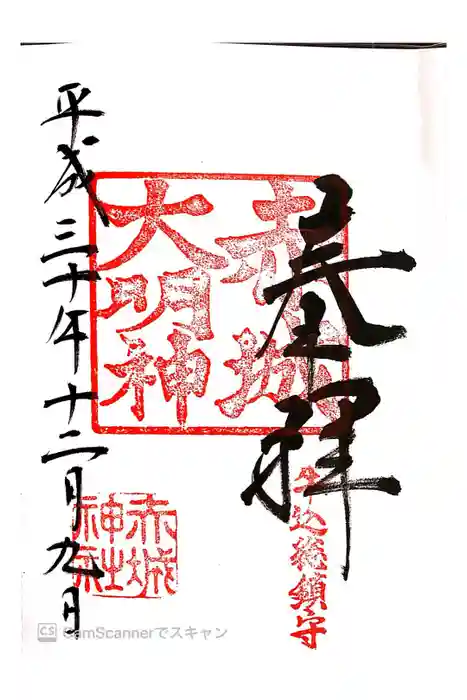 奉拝
赤城
大明神
牛込総鎮守
平成三十年十二月九日
赤城
神社
CS CamScannerでスキャン